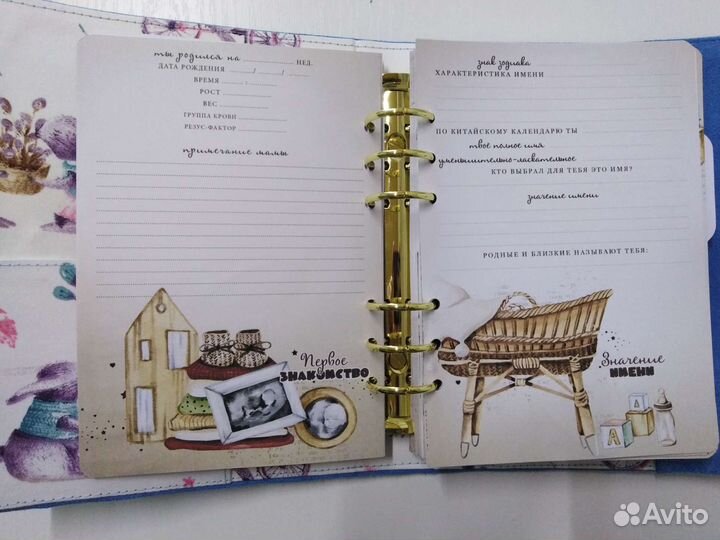 ты родился на ________ нед.
ДАТА РОЖДЕНИЯ ____/____/____
ВРЕМЯ ____:____
РОСТ ________
ВЕС ________
ГРУППА КРОВИ ________
РЕЗУС-ФАКТОР ________
примечание мамы
Первое
ЗНАКОМСТВО
знак зодиака
ХАРАКТЕРИСТИКА ИМЕНИ
ПО КИТАЙСКОМУ КАЛЕНДАРЮ ТЫ
твое полное имя
уменьшительно-ласкательное
КТО ВЫБРАЛ ДЛЯ ТЕБЯ ЭТО ИМЯ?
значение имени
РОДНЫЕ И БЛИЗКИЕ НАЗЫВАЮТ ТЕБЯ:
Значение
ИМЕНИ
A
A
Avito